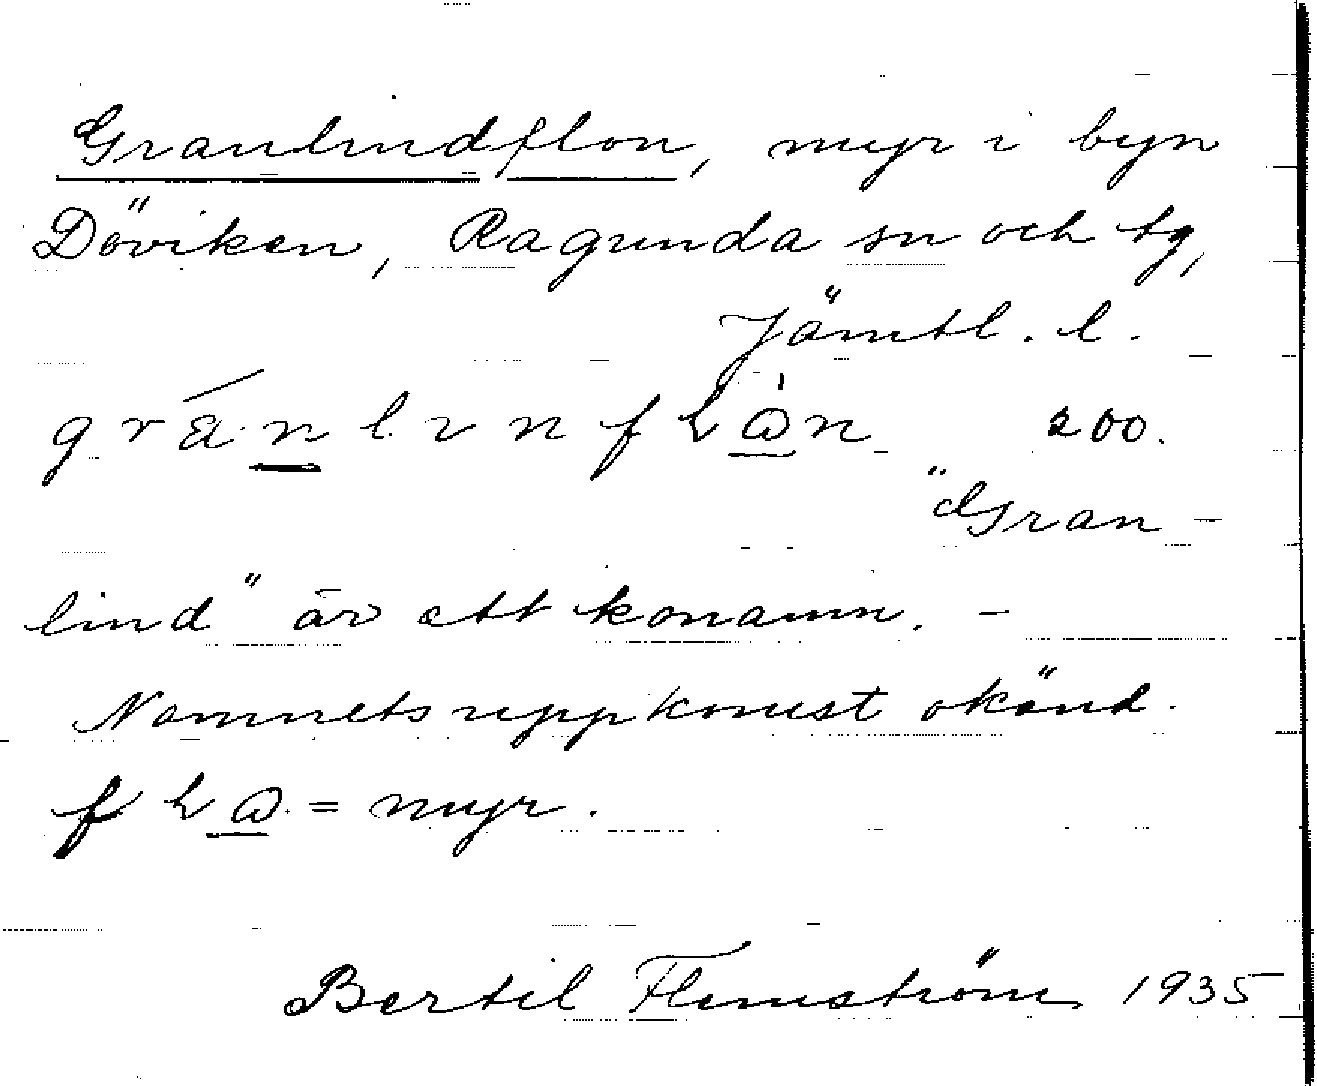 Granlindflon, myr i byn
Döviken, Ragunda sn och tg,
Jämtl. l.
200.
"Gran-
lind" är ett konamn. –
Namnets uppkomst okänd.
= myr.
Bertil Flemström 1935